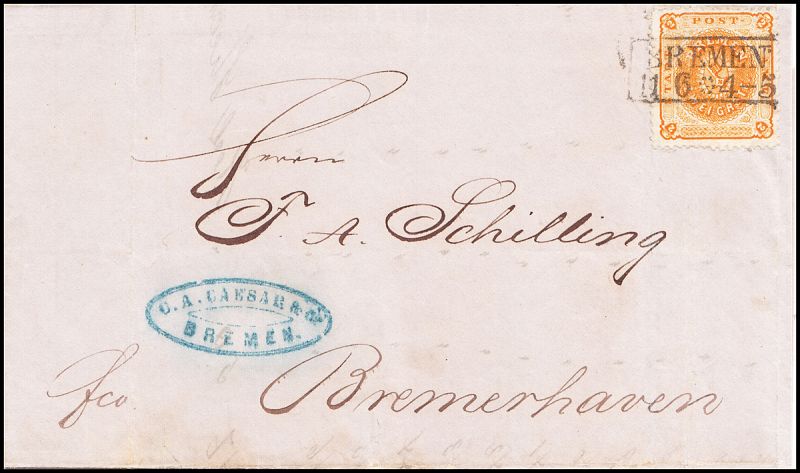 POST-
BREMEN
11 6 4-5
Herrn
F. A. Schilling
C. A. CAESAR & Co.
BREMEN.
fco
Bremerhaven